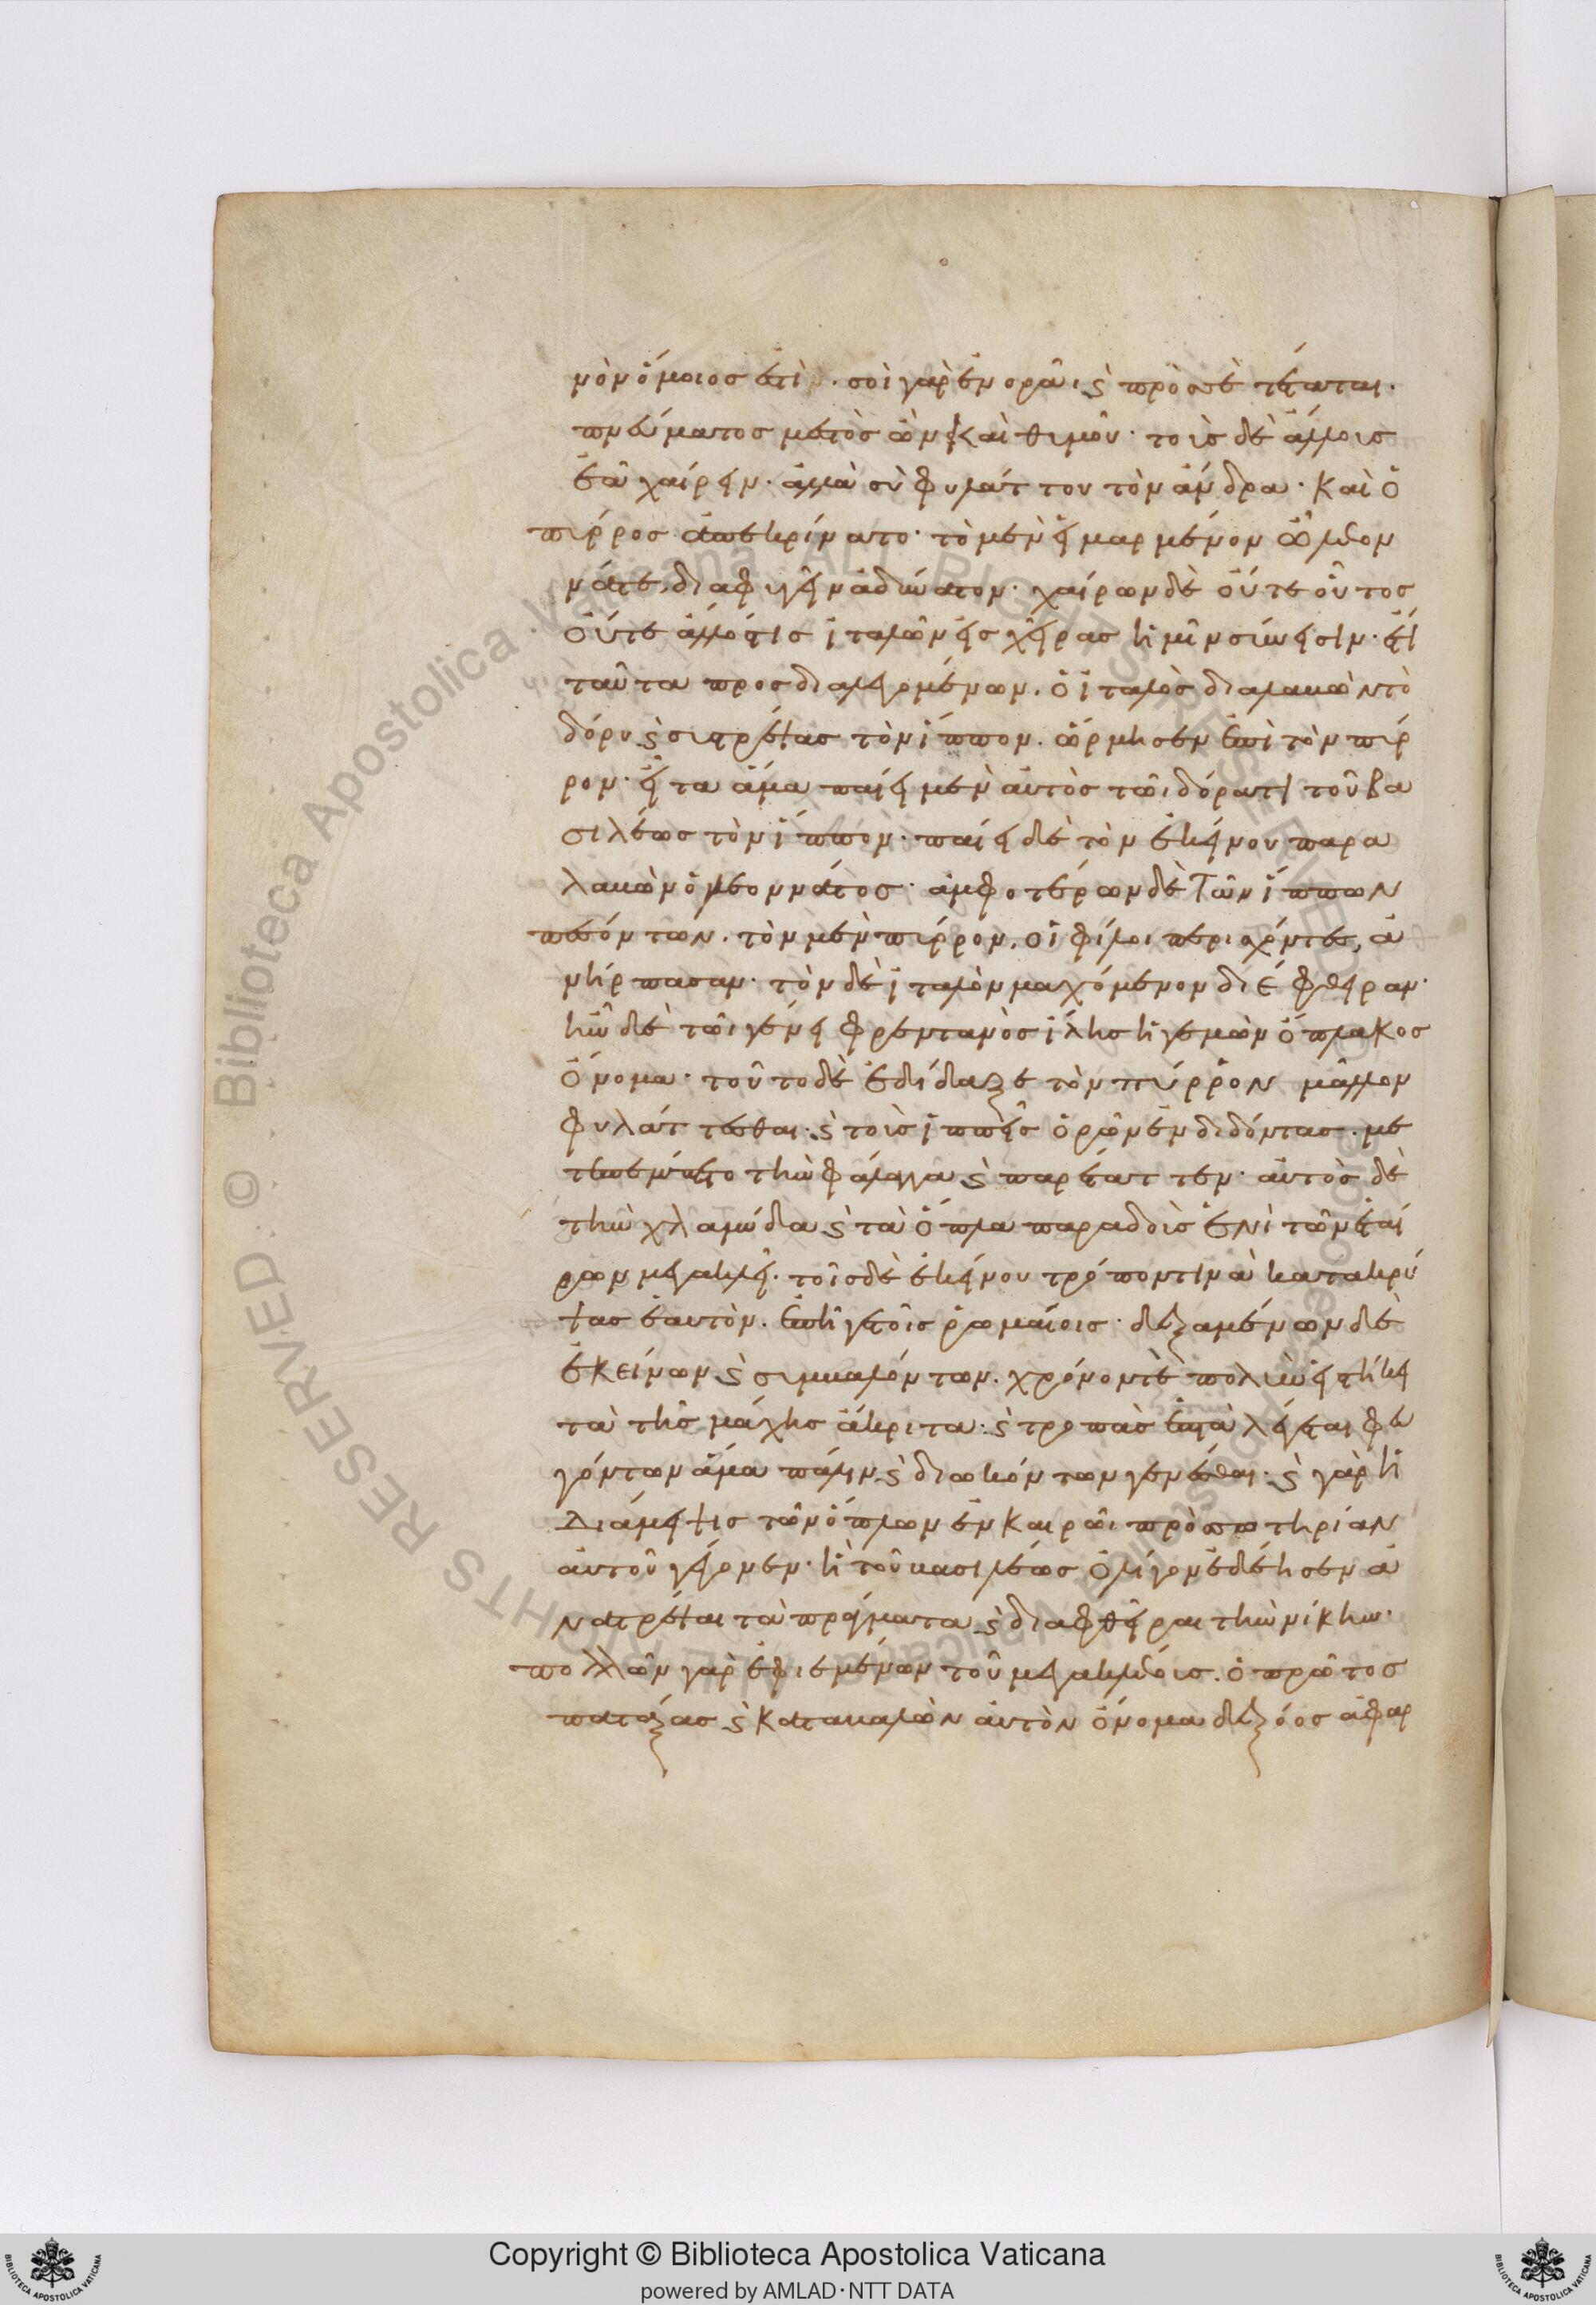 νὸν ὅμοιος ἐστὶν· σοὶ γὰρ ἐν ορᾶι καὶ πρὸς σὲ τέταται·
πνεύματος μεστὸς ὢν καὶ θυμοῦ· τοὺς δὲ ἄλλους
ἐᾶ χαίρειν· ἀλλὰ σὺ φυλάττου τὸν ἄνδρα· καὶ ὁ
πύρρος ἀπεκρίνατο· τὸ μὲν εἱμαρμένον ὦ λεον
νάτε, διαφυγεῖν ἀδύνατον· χαίρων δὲ οὔτε οὗτος
οὔτε ἄλλός τις ἰταλῶν εἰς χεῖρας ἡμῖν σύνεισιν· ἔτι
ταῦτα προσδιαλεγομένων. ὁ ἰταλὸς διαλαβὼν τὸ
δόρυ καὶ συστρέψας τὸν ἵππον. ὥρμησεν ἐπὶ τὸν πύρ
ρον· εἶτα ἅμα παίει μὲν αὐτὸς τῶι δόρατι τοῦ βα
σιλέως τὸν ἵππον· παίει δὲ τὸν ἐκείνου παρα
λαβὼν ὁ λεοννάτος· ἀμφοτέρων δὲ τῶν ἵππων
πεσόντων. τὸν μὲν πύρρον, οἱ φίλοι περισχόντες, ἀ
νήρπασαν· τὸν δὲ ἰταλὸν μαχόμενον διέφθειραν·
ἦν δὲ τῶι γένει φρεντανὸς ἴλης ἡγεμὼν ὅπλακος
ὄνομα· τοῦτο δὲ ἐδίδαξε τὸν πύρρον μᾶλλον
φυλάττεσθαι· καὶ τοὺς ἱππεῖς ὁρῶν ἐνδιδόντας. με
τεπέμπετο τὴν φάλαγγα καὶ παρέταττεν· αὐτὸς δὲ
τὴν χλαμύδα καὶ τὰ ὅπλα παραδοὺς ἑνὶ τῶν ἑταί
ρων μεγακλεῖ· τοῖς δὲ ἐκείνου τρόπον τινὰ κατακρύ
ψας ἑαυτὸν. ἐπῆγε τοῖς ῥωμαίοις· δεξαμένων δὲ
ἐκείνων καὶ συμβαλόντων. χρόνον τὲ πολὺν εἱστήκει
τὰ τῆς μάχης ἄκριτα· καὶ τροπὰς ἑπτὰ λέγεται φευ
γόντων ἅμα πάλιν καὶ διωκόντων γενέσθαι· καὶ γὰρ ἡ
διάμειψις τῶν ὅπλων ἐν καιρῶι πρὸς σωτηρίαν
αὐτοῦ γέγονεν· ἢ τοῦ βασιλέως ὀλίγον ἐδέησεν ἀ
νατρέψαι τὰ πράγματα καὶ διαφθεῖραι τὴν νίκην·
πολλῶν γὰρ ἐφιεμένων τοῦ μεγακλέους. ὁ πρῶτος
πατάξας καὶ καταβαλὼν αὐτὸν ὄνομα δεξόος ἀφαρ
Copyright © Biblioteca Apostolica Vaticana
powered by AMLAD·NTT DATA